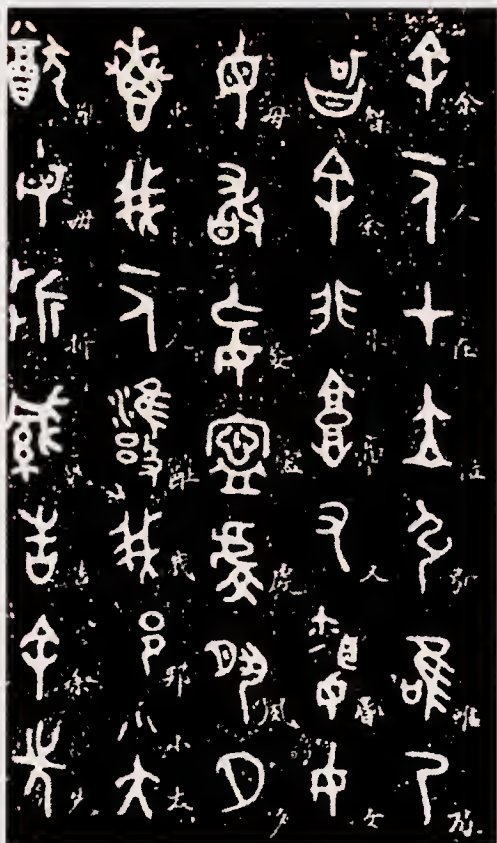 余一人在位弘唯乃
智余非庸又昏女
毋敢妄寧虔夙夕
惠我一人雝我邦小大
猷毋折緘告余先